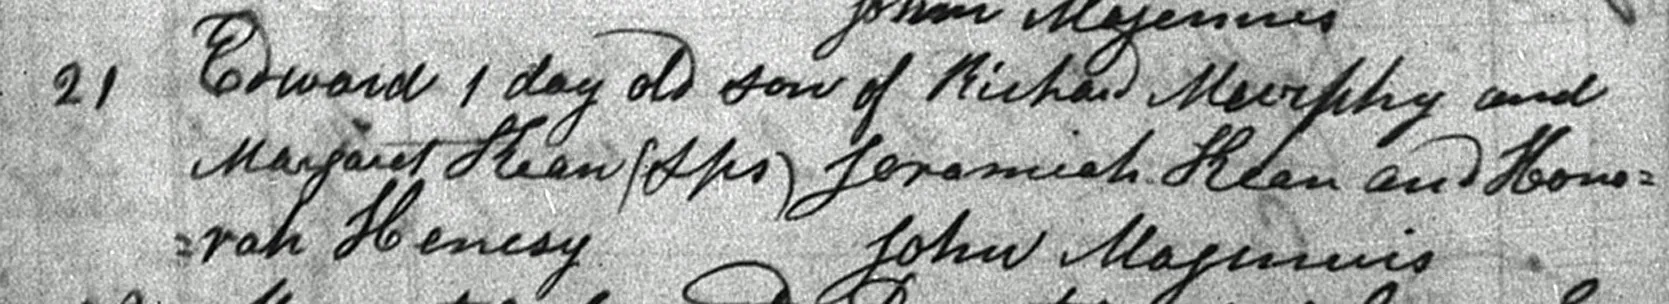 John Magennis
21 Edward 1 day old son of Richard Murphy and
Margaret Kean (Sps) Jeramiah Kean and Hono=
=rah Henesy John Magennis